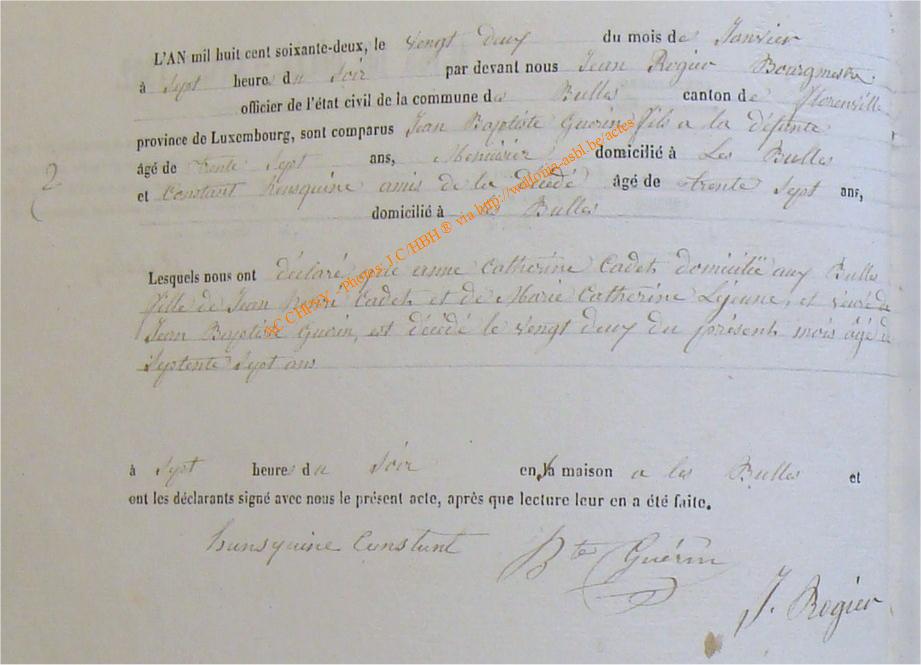 L'AN mil huit cent soixante-deux, le vengt deux du mois de Janvier
à sept heure du soir par devant nous Jean Rogier Bourgmestre
officier de l'état civil de la commune des Bulles canton de Florenville
province de Luxembourg, sont comparus Jean Baptiste Guerin fils a la défunte
âgé de trente sept ans, Menuisier domicilié à Les Bulles
2
et Constant hunsquine amis de la décédé âgé de trente sept ans,
domicilié à les Bulles
Lesquels nous ont déclaré que anne Catherine Cadet domiciliée aux Bulles
fille de Jean Henri Cadet et de Marie Catherine Lejeune, et veuve de
Jean Baptiste Guerin, est décédé le vengt deux du présent mois âgé de
Septente Sept ans
à sept heure du soir en la maison a les Bulles et
ont les déclarants signé avec nous le présent acte, après que lecture leur en a été faite.
hunsquine Constant Bte Guérin
J. Rogier
M.C CHPGV - Photos J.C/HBH ® via http://wallonia-asbl.be/actes